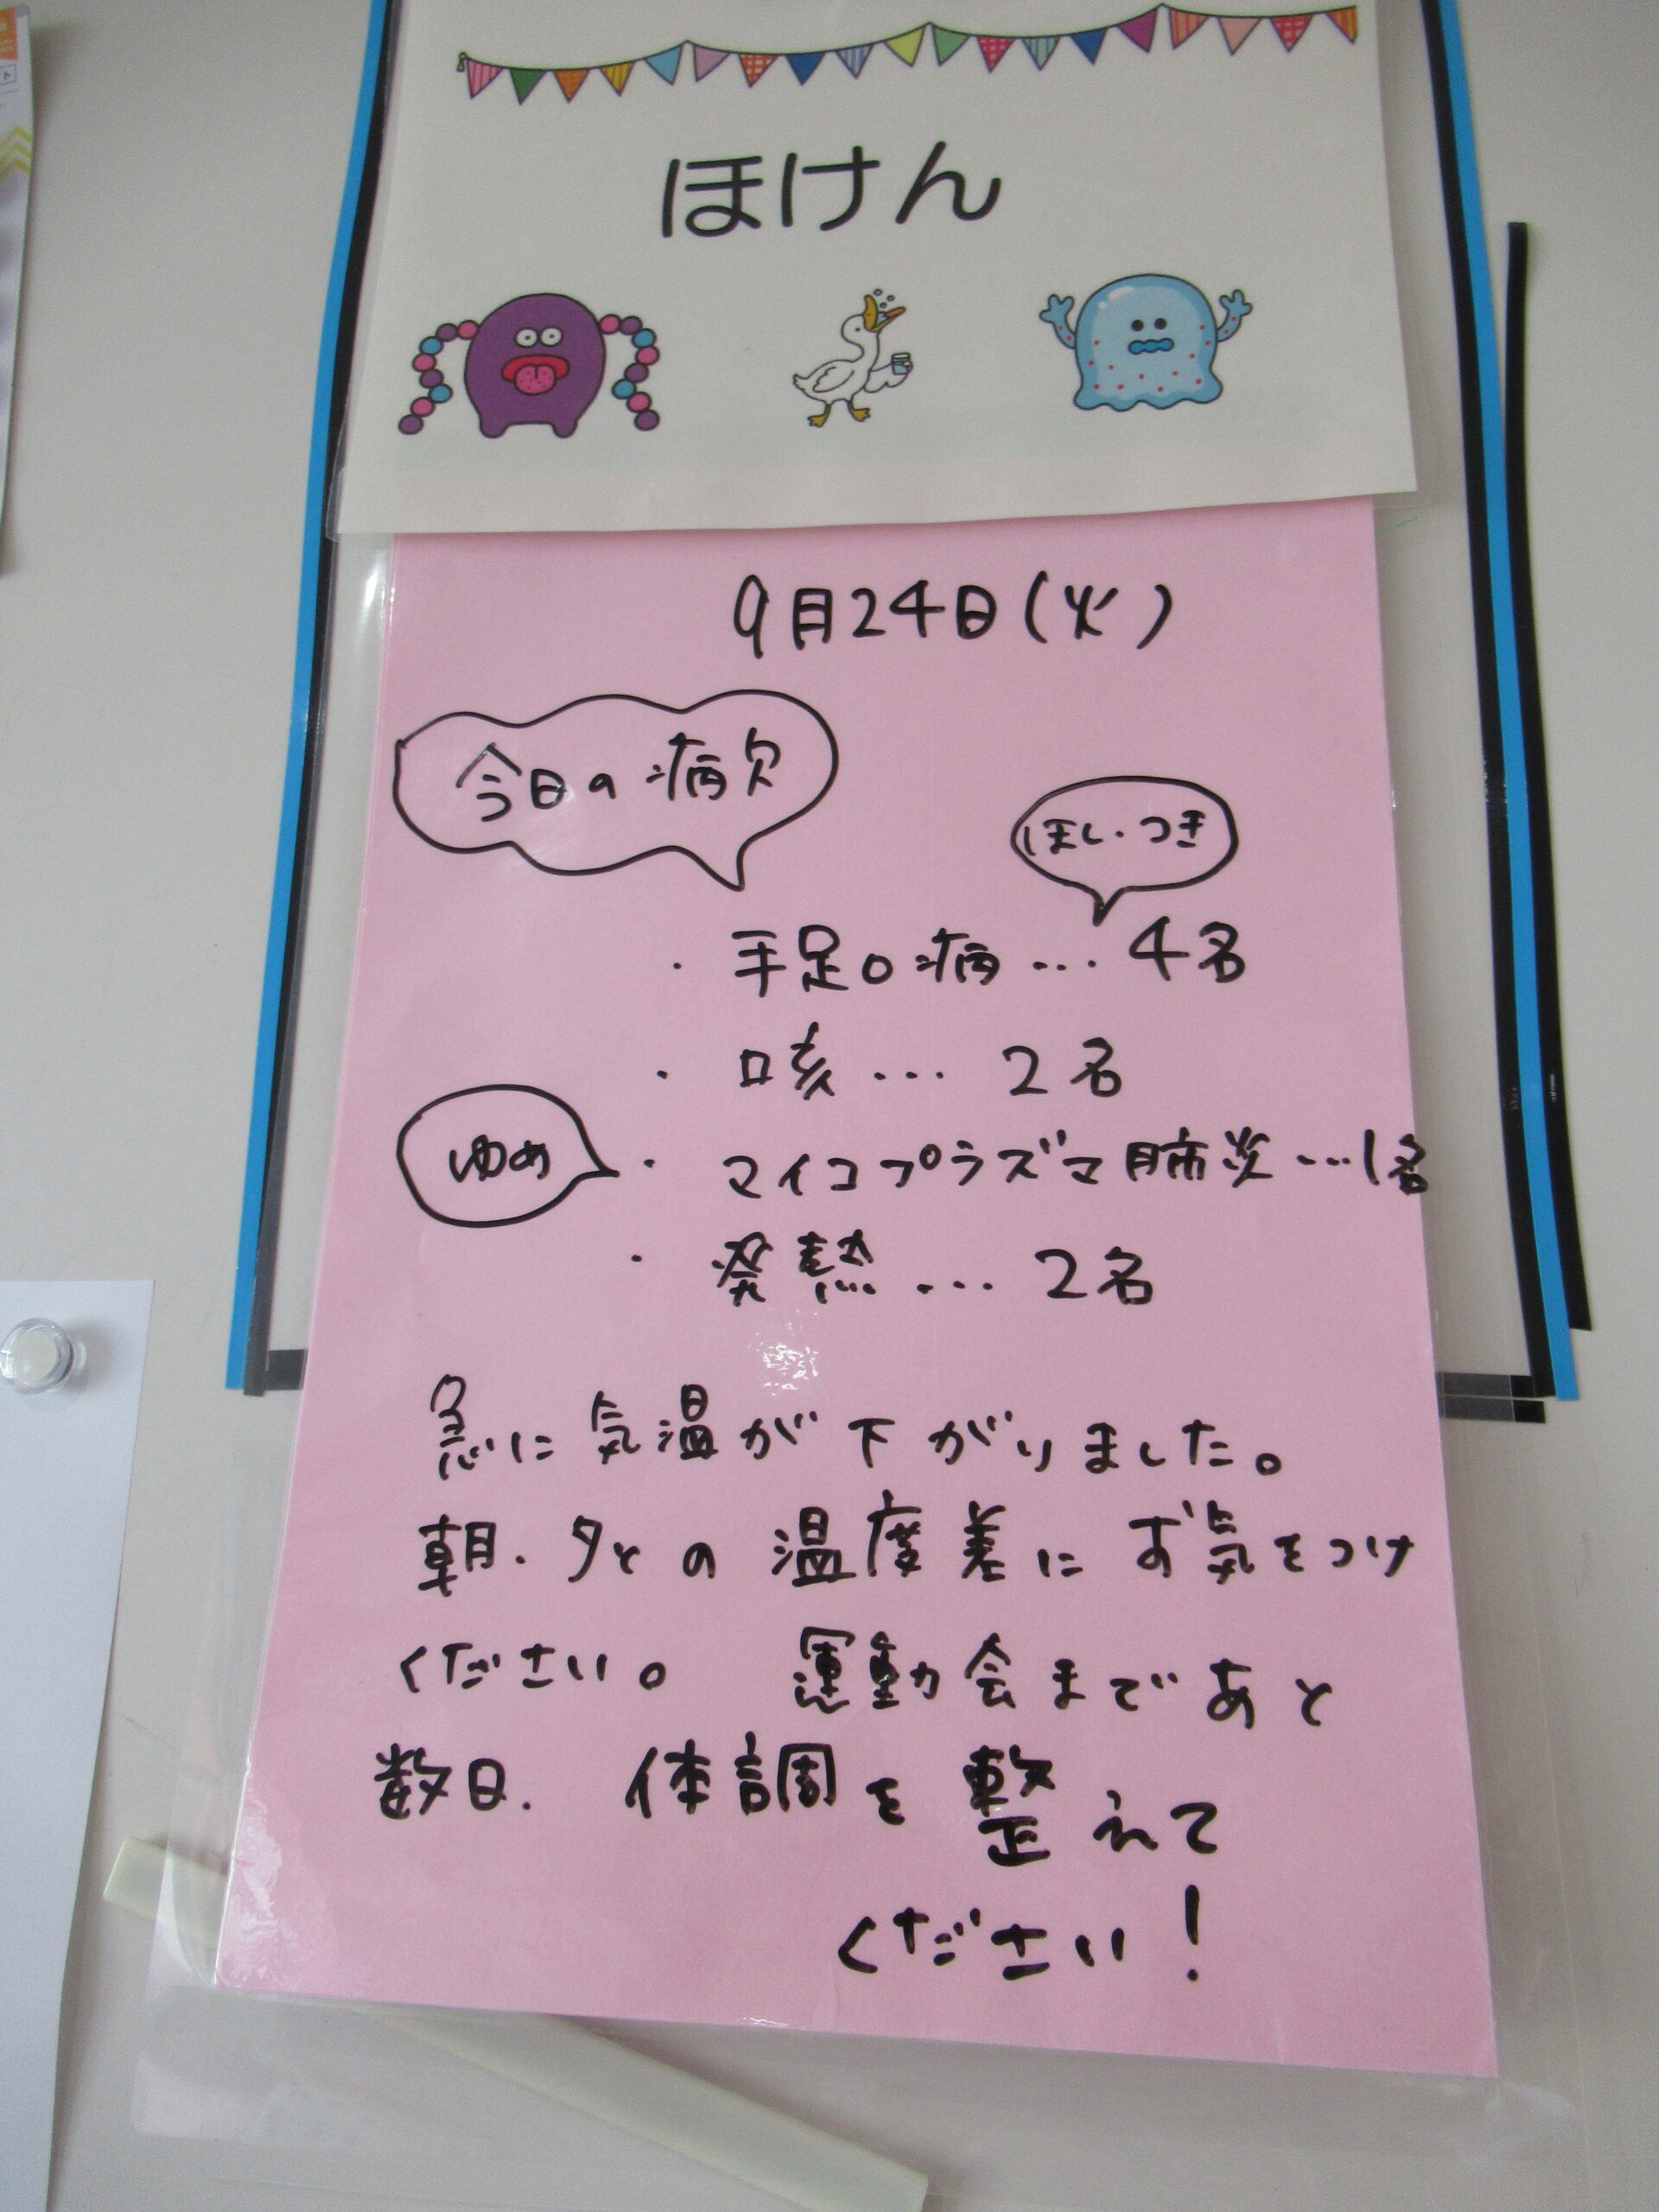 ほけん
9月24日(火)
今日の病欠
ほし・つき
・手足口病…4名
・咳…2名
ゆめ
・マイコプラズマ肺炎…1名
・発熱…2名
急に気温が下がりました。
朝・夕との温度差にお気をつけ
ください。 運動会まであと
数日、体調を整えて
ください!